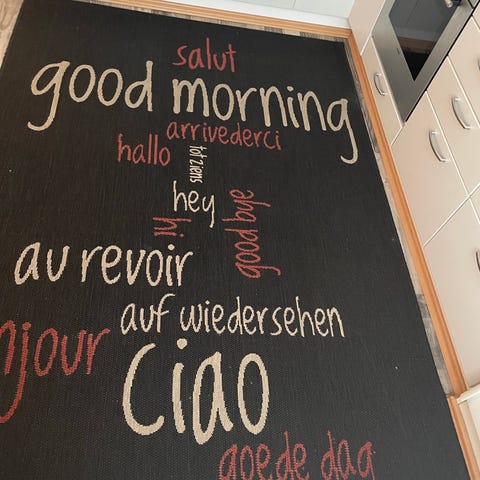 salut
good morning
arrivederci
hallo
tot ziens
hey
hi
good bye
au revoir
auf wiedersehen
njour
ciao
goede dag